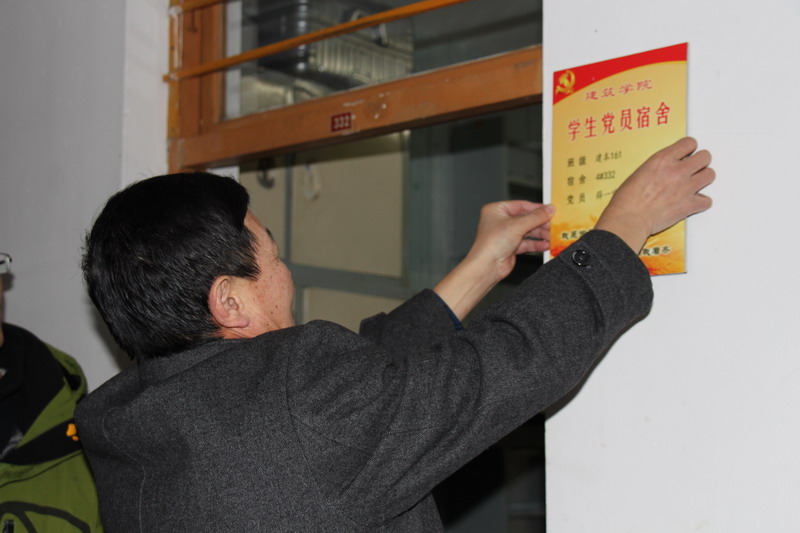 332
建筑学院
学生党员宿舍
班级 建本161
宿舍 4#332
党员 薛一
我是